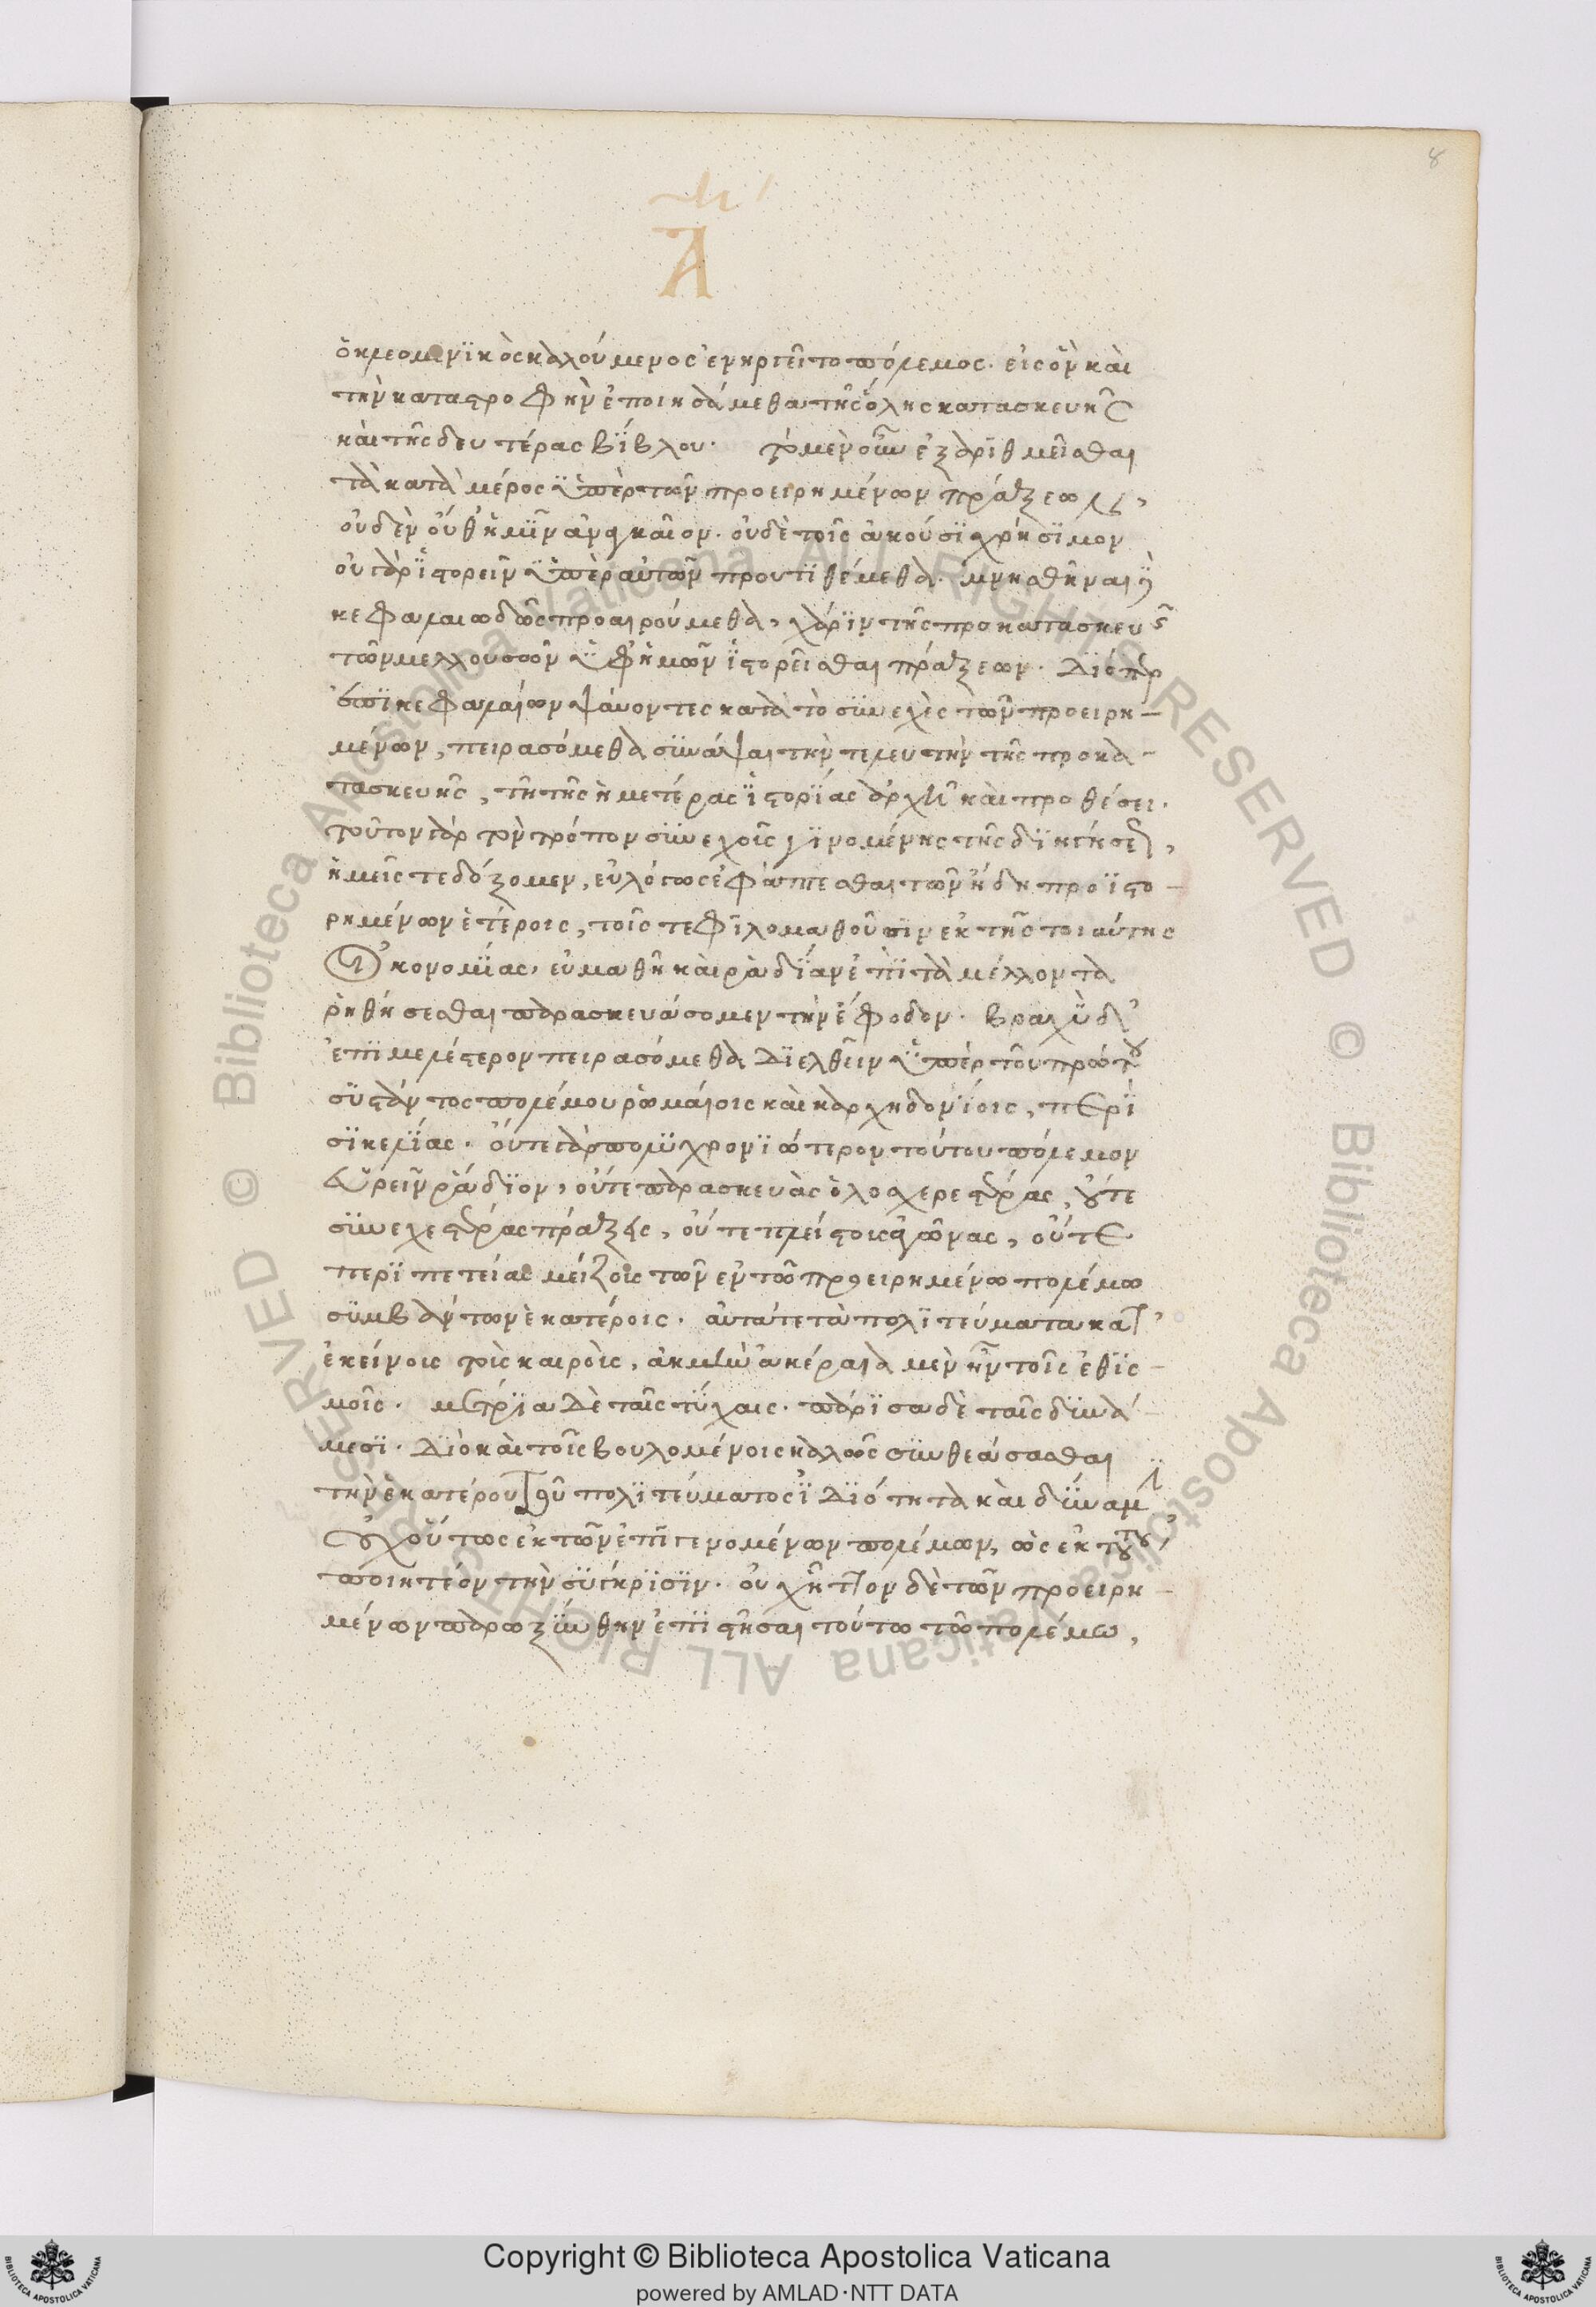 8
Α
ὁ κλεομενϊκὸς καλούμενος ἐνηρτεῖτο πόλεμος. εἰς ὃν καὶ
τὴν καταστροφὴν ἐποιησάμεθα τῆς ὅλης κατασκευῆς
καὶ τῆς δευτέρας βΐβλου. τὸ μὲν οὖν ἐξαρϊθμεῖσθαι
τὰ κατὰ μέρος ϋπὲρ τῶν προειρημένων πράξεων,
οὐδὲν οὔθ ἡμῖν ἀναγκαῖον. οὐδὲ τοῖς ἀκούσϊ χρήσϊμον
οὐ γὰρ ϊστορεῖν ϋπὲρ αὐτῶν προυτϊθέμεθα. μνησθῆναι δὲ
κεφαλαιωδῶς προαιρούμεθα, χάρϊν τῆς προκατασκευῆς
τῶν μελλουσῶν ϋφ ἡμῶν ϊστορεῖσθαι πράξεων. Διόπερ
ἐπϊ κεφαλαίων ψάυοντες κατὰ τὸ συνεχὲς τῶν προειρη-
μένων, πειρασόμεθα συνάψαι τὴν τελευτὴν τῆς προκα-
τασκευῆς, τῇ τῆς ἡμετέρας ϊστορΐας ἀρχῇ καὶ προθέσει.
τοῦτον γὰρ τὸν τρόπον συνεχοῦς γϊνομένης τῆς δϊηγήσεως,
ἡμεῖς τε δόξομεν, εὐλόγως ἐφάπτεσθαι τῶν ἤδη προϊστο-
ρημένων ἑτέροις, τοῖς τε φϊλομαθοῦσιν ἐκ τῆς τοιαύτης
οἰκονομΐας, εὐμαθῆ καὶ ραδΐαν ἐπὶ τὰ μέλλοντα
ρηθήσεσθαι παρασκευάσομεν τὴν ἔφοδον. βραχὺ δ
ἐπϊμελέστερον πειρασόμεθα Διελθεῖν ϋπὲρ τοῦ πρώτου
συστάντος πολέμου ρωμαίοις καὶ καρχηδονΐοις, περϊ
σϊκελΐας. οὔτε γὰρ πολυχρονϊώτερον τούτου πόλεμον
εὑρεῖν ρᾴδϊον, οὔτε παρασκευὰς ὁλοσχερεστέρας, οὔτε
συνεχεστέρας πράξεις, οὔτε πλείους ἀγῶνας, οὔτε
περϊπετείας μείζους τῶν ἐν τῶ προειρημένω πολέμω
συμβάντων ἑκατέροις. αὐτά τε τὰ πολϊτεύματα κατ
ἐκείνους τοὺς καιροὺς, ἀκμὴν ἀκέραια μὲν ἦν τοῖς ἐθϊσ-
μοῖς. μέτρια Δὲ ταῖς τύχαις. πάρϊσα δὲ ταῖς δυνά-
μεσϊ. Διὸ καὶ τοῖς βουλομένοις καλῶς συνθεάσασθαι
τὴν ἑκατέρου τοῦ πολϊτεύματος ϊΔϊότητα καὶ δύναμϊν
οὐχ οὕτως ἐκ τῶν ἐπϊγενομένων πολέμων, ὡς ἐκ τούτου
ποιητέον τὴν σύγκρϊσϊν. οὐχ ἧττον δὲ τῶν προειρη-
μένων παρωξύνθην ἐπϊστῆσαι τούτω τῶ πολέμω,
Copyright © Biblioteca Apostolica Vaticana
powered by AMLAD·NTT DATA